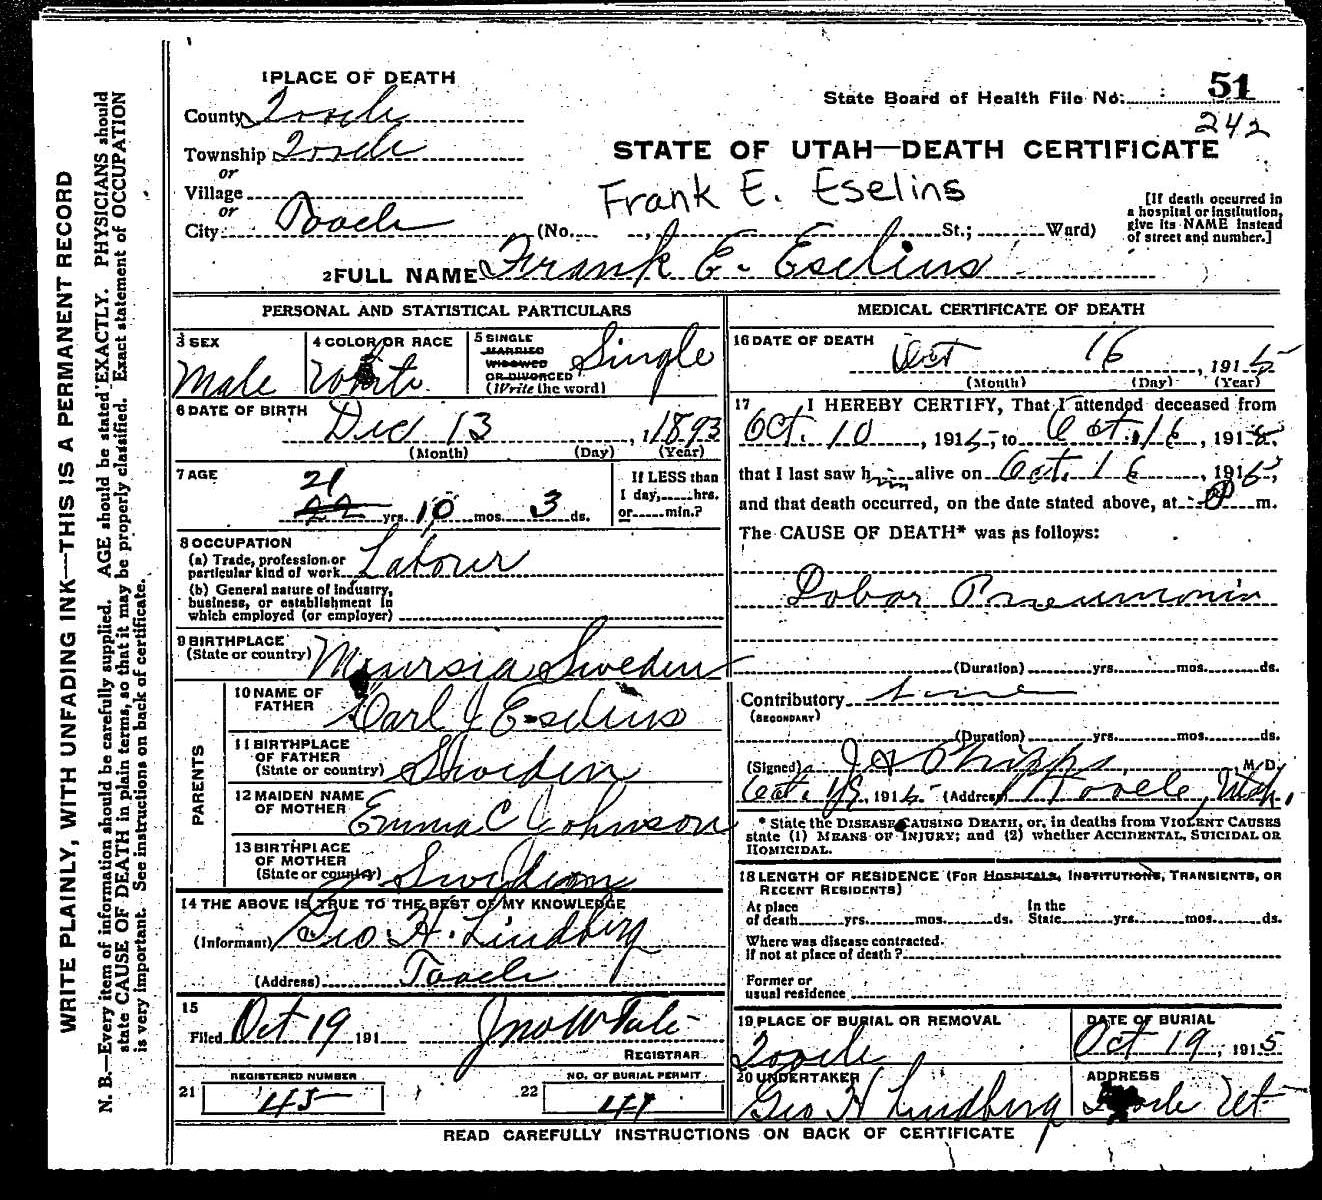 1 PLACE OF DEATH
County Tooele
Township Tooele
or
Village
or
City Tooele (No. , St.; Ward)
State Board of Health File No. 51
242
STATE OF UTAH—DEATH CERTIFICATE
Frank E. Eselins
[If death occurred in a hospital or institution, give its NAME instead of street and number.]
2 FULL NAME Frank E. Eselins
PERSONAL AND STATISTICAL PARTICULARS
3 SEX
Male
4 COLOR OR RACE
White
5 SINGLE
MARRIED
WIDOWED
OR DIVORCED
(Write the word)
Single
6 DATE OF BIRTH
Dec 13, 1893
(Month) (Day) (Year)
7 AGE
21
22 yrs. 10 mos. 3 ds.
If LESS than
1 day, hrs.
or min.?
8 OCCUPATION
(a) Trade, profession or
particular kind of work Labour
(b) General nature of industry,
business, or establishment in
which employed (or employer)
9 BIRTHPLACE
(State or country) Sweden
PARENTS
10 NAME OF
FATHER Carl J Eselins
11 BIRTHPLACE
OF FATHER
(State or country) Sweden
12 MAIDEN NAME
OF MOTHER Emma C Johnson
13 BIRTHPLACE
OF MOTHER
(State or country) Sweden
14 THE ABOVE IS TRUE TO THE BEST OF MY KNOWLEDGE
(Informant) Geo H. Lindberg
(Address) Tooele
15
Filed Oct 19 191 Jno W Tate
REGISTRAR
REGISTERED NUMBER
21 45
NO. OF BURIAL PERMIT
22 44
MEDICAL CERTIFICATE OF DEATH
16 DATE OF DEATH
Oct 16, 1915
(Month) (Day) (Year)
17 I HEREBY CERTIFY, That I attended deceased from
Oct. 10, 1915, to Oct. 16, 1915,
that I last saw him alive on Oct. 16, 1915,
and that death occurred, on the date stated above, at P m.
The CAUSE OF DEATH* was as follows:
Lobar Pneumonia
(Duration) yrs. mos. ds.
Contributory none
(SECONDARY)
(Duration) yrs. mos. ds.
(Signed) J A Phipps, M.D.
Oct. 18, 1915 (Address) Tooele, Utah.
* State the DISEASE CAUSING DEATH, or, in deaths from VIOLENT CAUSES
state (1) MEANS OF INJURY; and (2) whether ACCIDENTAL, SUICIDAL OR
HOMICIDAL.
18 LENGTH OF RESIDENCE (FOR HOSPITALS, INSTITUTIONS, TRANSIENTS, OR
RECENT RESIDENTS)
At place
of death yrs. mos. ds.
In the
State yrs. mos. ds.
Where was disease contracted,
If not at place of death?
Former or
usual residence
19 PLACE OF BURIAL OR REMOVAL
Tooele
DATE OF BURIAL
Oct 19, 1915
20 UNDERTAKER
Geo H Lindberg
ADDRESS
Tooele Ut
READ CAREFULLY INSTRUCTIONS ON BACK OF CERTIFICATE
WRITE PLAINLY, WITH UNFADING INK—THIS IS A PERMANENT RECORD
N. B.—Every item of information should be carefully supplied. AGE should be stated EXACTLY. PHYSICIANS should
state CAUSE OF DEATH in plain terms, so that it may be properly classified. Exact statement of OCCUPATION
is very important. See instructions on back of certificate.